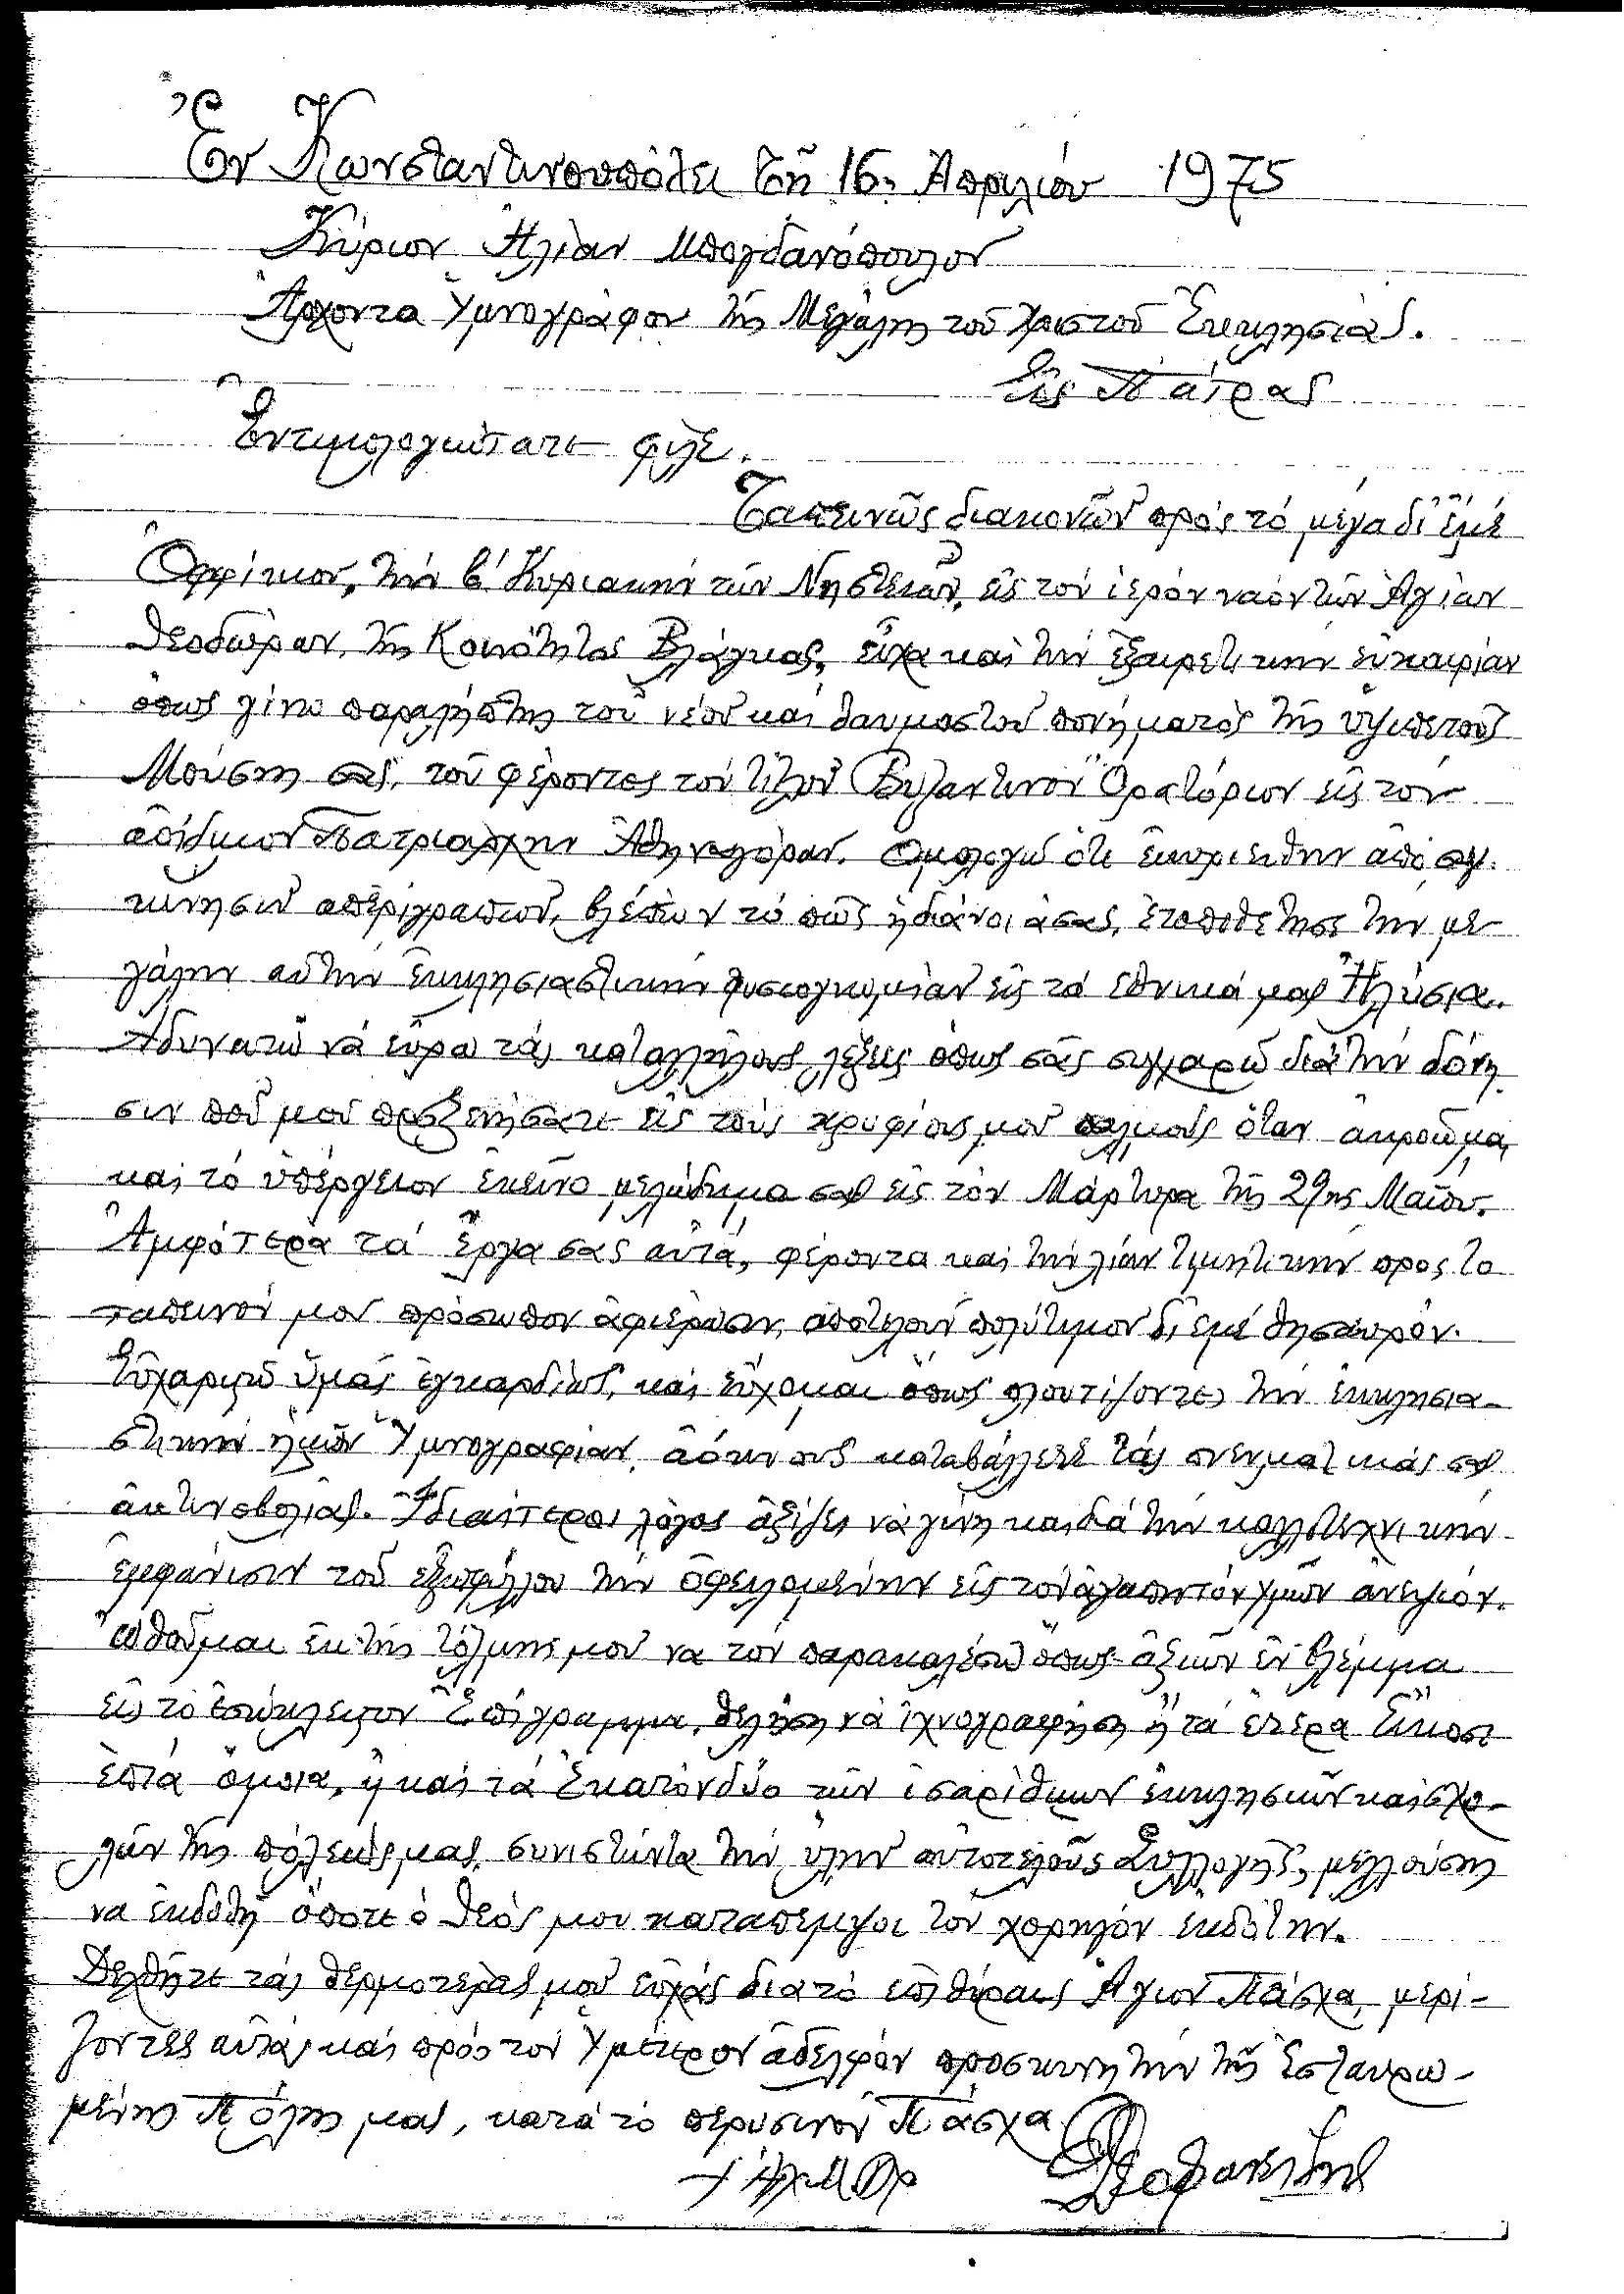 Ἐν Κωνσταντινουπόλει τῇ 16ῃ Ἀπριλίου 1975
Κύριον Ἠλίαν Μπογδανόπουλον
Ἄρχοντα Ὑμνογράφον τῆς Μεγάλης τοῦ Χριστοῦ Ἐκκλησίας.
Εἰς Πάτρας
Ἐντιμολογιώτατε φίλε.
Ταπεινῶς διακονῶν πρὸς τό μέγα δι' ἐμέ
Ὀφφίκιον, τήν β' Κυριακήν τῶν Νηστειῶν, εἰς τόν ἱερόν ναόν τῶν Ἁγίων
Θεοδώρων, τῆς Κοινότητος Βλάγκας, εἶχα καί τήν ἐξαιρετικήν εὐκαιρίαν
ὅπως γίνω παραλήπτης τοῦ νέου καί θαυμαστοῦ πονήματος τῆς ὑψιπετοῦς
Μούσης σας, τοῦ φέροντος τόν τίτλον Βυζαντινόν Ὀρατόριον εἰς τόν
ἀοίδιμον Πατριάρχην Ἀθηναγόραν. Ὁμολογῶ ὅτι ἐκυριεύθην ἀπό συγ-
κίνησιν ἀπερίγραπτον, βλέπων τό πῶς ἡ διάνοιά σας, ἐτοποθέτησε τήν με-
γάλην αὐτήν ἐκκλησιαστικήν φυσιογνωμίαν εἰς τά ἐθνικά μας Ἠλύσια.
Ἀδυνατῶ νά εὕρω τάς καταλλήλους λέξεις ὅπως σᾶς συγχαρῶ διά τήν δόνη
σιν πού μοῦ προξενήσατε εἰς τούς κρυφίους μου παλμούς ὅταν ἀκροῶμαι
καί τό ὑπέργειον ἐκεῖνο μελώδημα σας εἰς τόν Μάρτυρα τῆς 29ης Μαΐου.
Ἀμφότερα τά ἔργα σας αὐτά, φέροντα καί τήν λίαν τιμητικήν πρός το
ταπεινόν μου πρόσωπον ἀφιέρωσιν, ἀποτελοῦν πολύτιμον δι' ἐμέ θησαυρόν.
Εὐχαριστῶ ὑμᾶς ἐγκαρδίως, καί εὔχομαι ὅπως πλουτίζοντες τήν ἐκκλησια-
στικήν ἡμῶν Ὑμνογραφίαν, ἀόκνως καταβάλλετε τάς πνευματικάς σας
ἀκτινοβολίας. Ἰδιαίτερος λόγος ἀξίζει νά γίνη καί διά τήν καλλιτεχνικήν
ἐμφάνισιν τοῦ ἐξωφύλλου τήν ὀφειλομένην εἰς τόν ἀγαπητόν ὑμῶν ἀνεψιόν.
Ὠθοῦμαι ἐκ τῆς τόλμης μου να τόν παρακαλέσω ὅπως ἀξιῶν ἐν βλέμμα
εἰς τό ἐσώκλειστον Ἐπίγραμμα, θελήση νά ἰχνογραφήση ἤ τά ἕτερα Εἴκοσι
ἑπτά ὅμοια, ἤ καί τά Ἑκατόν δύο τῶν ἰσαρίθμων ἐκκλησιῶν καί σχο-
λῶν τῆς πόλεώς μας, συνιστῶντα τήν ὕλην αὐτοτελοῦς Συλλογῆς, μελλούσης
να ἐκδοθῆ ὁπότε ὁ Θεός μου καταπέμψοι τόν χορηγόν ἐκδότην.
Δεχθῆτε τάς θερμοτέρας μου εὐχάς δια τό ἐπί θύραις Ἅγιον Πάσχα, μερί-
ζοντες αὐτάς καί πρός τόν Ὑμέτερον ἀδελφόν προσκυνητήν τῆς Ἐσταυρω-
μένης Πόλης μας, κατά τό περυσινόν Πάσχα